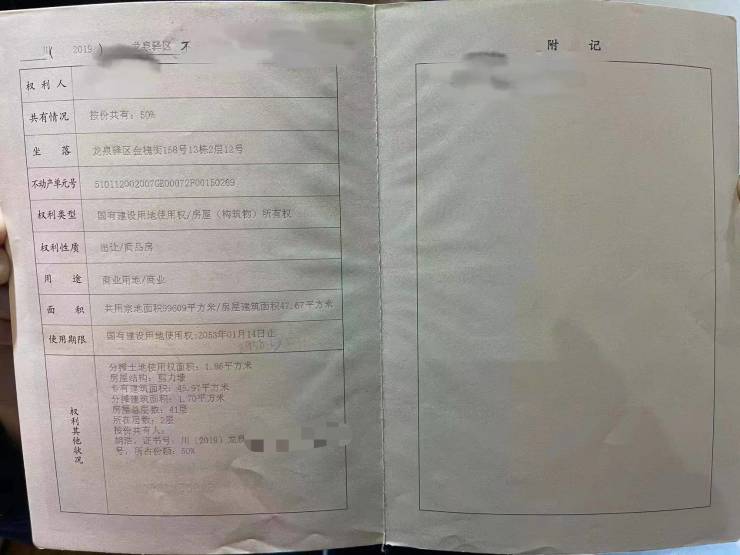 川( 2019 ) 龙泉驿区 不
附 记
权 利 人
共有情况 按份共有：50%
坐 落 龙泉驿区金槐街158号13栋2层12号
不动产单元号 510112002007GB00072F00150269
权利类型 国有建设用地使用权/房屋（构筑物）所有权
权利性质 出让/商品房
用 途 商业用地/商业
面 积 共用宗地面积99609平方米/房屋建筑面积47.67平方米
使用期限 国有建设用地使用权:2053年01月14日止
权利其他状况
分摊土地使用权面积：1.86平方米
房屋结构：剪力墙
专有建筑面积：45.97平方米
分摊建筑面积：1.70平方米
房屋总层数：41层
所在层数：2层
按份共有人：
胡浩，证书号：川（2019）龙泉
号，所占份额：50%